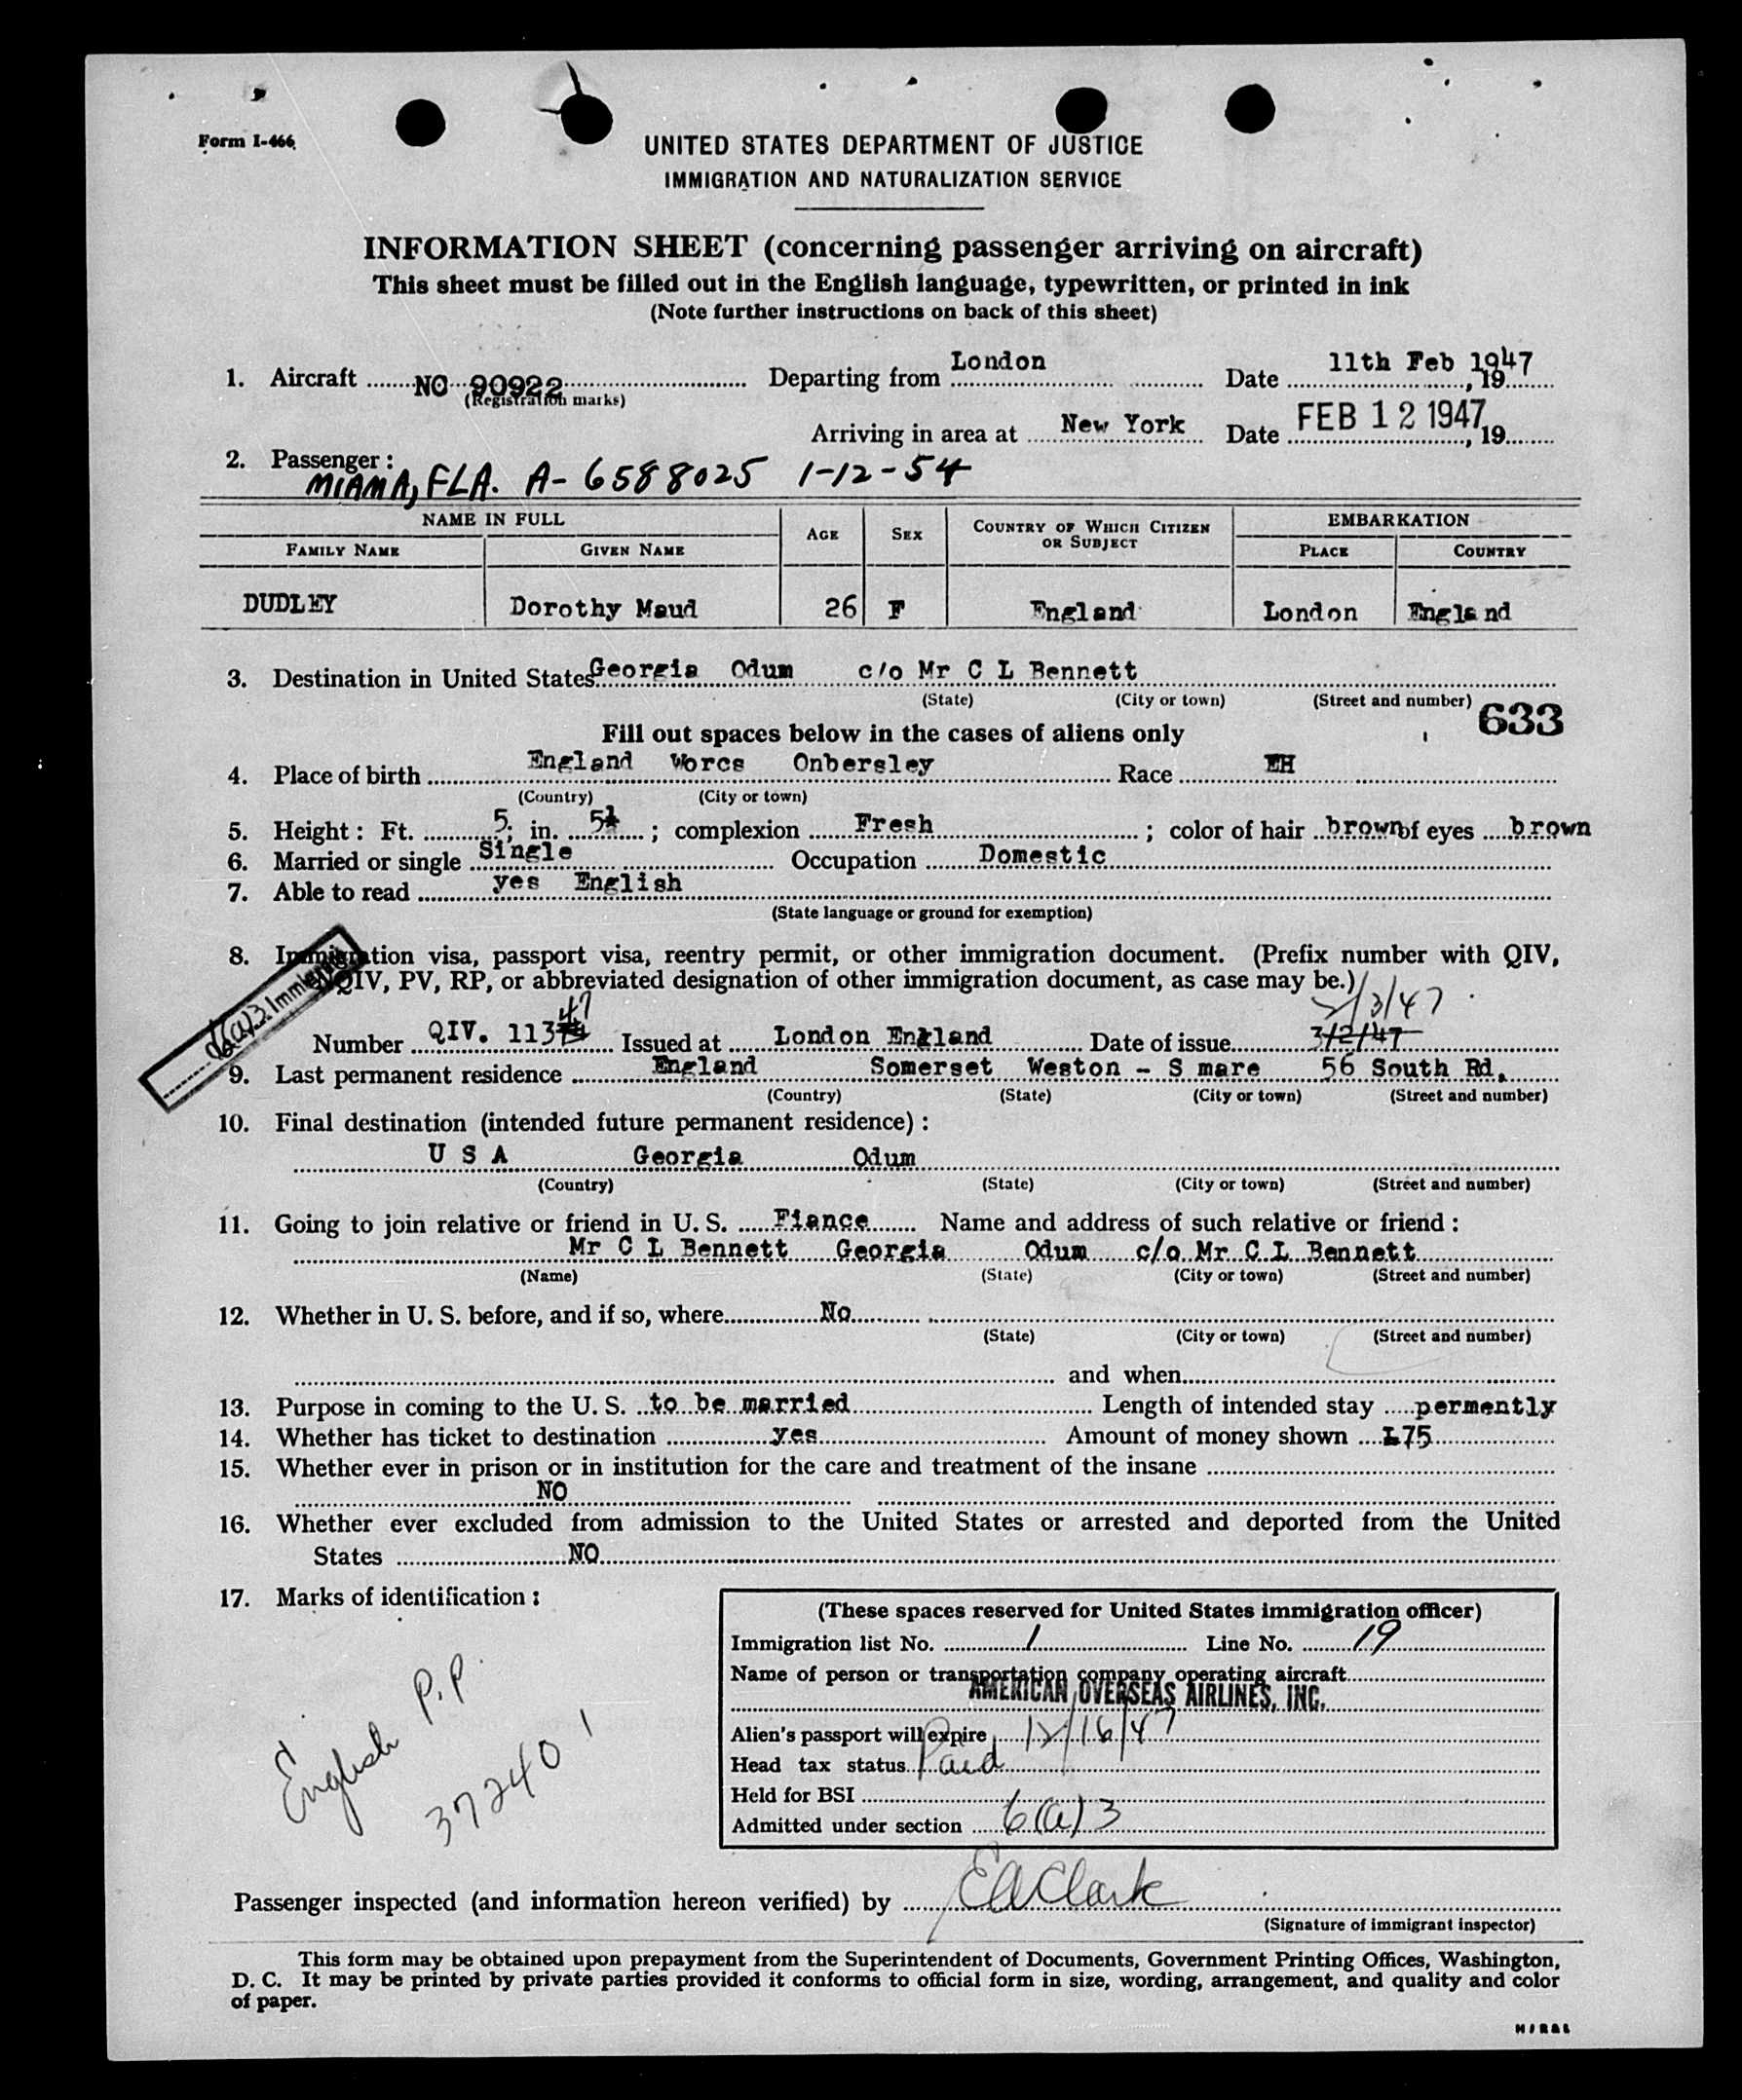 Form I-466
UNITED STATES DEPARTMENT OF JUSTICE
IMMIGRATION AND NATURALIZATION SERVICE
INFORMATION SHEET (concerning passenger arriving on aircraft)
This sheet must be filled out in the English language, typewritten, or printed in ink
(Note further instructions on back of this sheet)
1. Aircraft NO 90922 Departing from London Date 11th Feb 1947, 19
(Registration marks)
Arriving in area at New York Date FEB 12 1947, 19
2. Passenger:
MIAMA, FLA. A-6588025 1-12-54
NAME IN FULL AGE SEX COUNTRY OF WHICH CITIZEN OR SUBJECT EMBARKATION
FAMILY NAME GIVEN NAME PLACE COUNTRY
DUDLEY Dorothy Maud 26 F England London England
3. Destination in United States Georgia Odum c/o Mr C L Bennett
(State) (City or town) (Street and number)
633
Fill out spaces below in the cases of aliens only
4. Place of birth England Worcs Onbersley Race EH
(Country) (City or town)
5. Height: Ft. 5; in. 5½; complexion Fresh; color of hair brown of eyes brown
6. Married or single Single Occupation Domestic
7. Able to read yes English
(State language or ground for exemption)
8. Immigration visa, passport visa, reentry permit, or other immigration document. (Prefix number with QIV,
NQIV, PV, RP, or abbreviated designation of other immigration document, as case may be.)
6(a)3. Immigrant
2/3/47
Number QIV. 113 47 Issued at London England Date of issue 3/2/47
9. Last permanent residence England Somerset Weston - S mare 56 South Rd.
(Country) (State) (City or town) (Street and number)
10. Final destination (intended future permanent residence):
U S A Georgia Odum
(Country) (State) (City or town) (Street and number)
11. Going to join relative or friend in U. S. Fiance Name and address of such relative or friend:
Mr C L Bennett Georgia Odum c/o Mr C L Bennett
(Name) (State) (City or town) (Street and number)
12. Whether in U. S. before, and if so, where No
(State) (City or town) (Street and number)
and when
13. Purpose in coming to the U. S. to be married Length of intended stay permently
14. Whether has ticket to destination yes Amount of money shown £75
15. Whether ever in prison or in institution for the care and treatment of the insane
NO
16. Whether ever excluded from admission to the United States or arrested and deported from the United
States NO
17. Marks of identification:
English P.P.
372401
(These spaces reserved for United States immigration officer)
Immigration list No. 1 Line No. 19
Name of person or transportation company operating aircraft
AMERICAN OVERSEAS AIRLINES, INC.
Alien's passport will expire 12/16/47
Head tax status Paid
Held for BSI
Admitted under section 6(a)3
Passenger inspected (and information hereon verified) by EAClark
(Signature of immigrant inspector)
This form may be obtained upon prepayment from the Superintendent of Documents, Government Printing Offices, Washington,
D. C. It may be printed by private parties provided it conforms to official form in size, wording, arrangement, and quality and color
of paper.